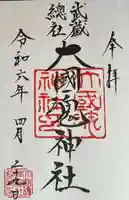 奉拝
武蔵
總社
大國魂神社
令和六年四月二十九日